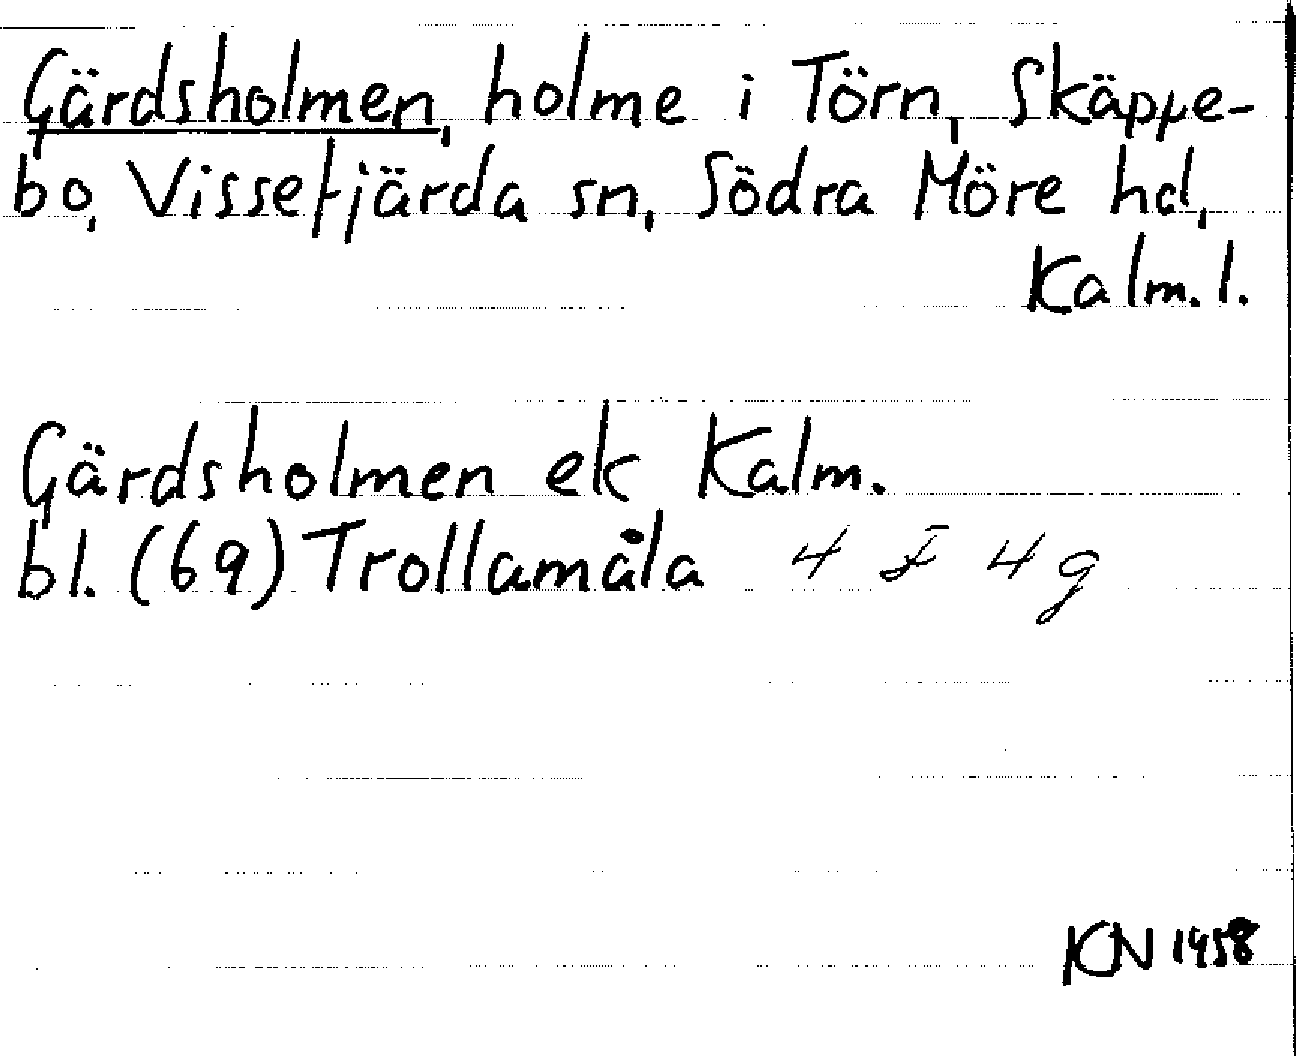 Gärdsholmen, holme i Törn, Skäppe-
bo, Vissefjärda sn, Södra Möre hd,
Kalm. l.
Gärdsholmen ek Kalm.
bl. (69) Trollamåla 4 F 4 g
KN 1958